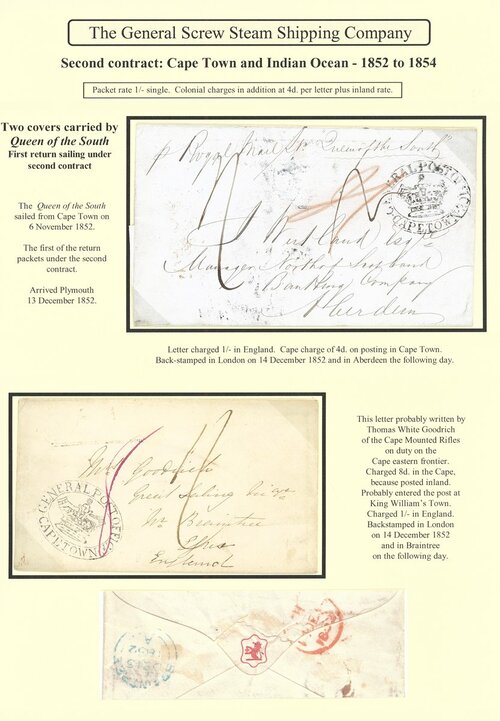 The General Screw Steam Shipping Company
Second contract: Cape Town and Indian Ocean - 1852 to 1854
Packet rate 1/- single.  Colonial charges in addition at 4d. per letter plus inland rate.
Two covers carried by
Queen of the South
First return sailing under
second contract
The Queen of the South
sailed from Cape Town on
6 November 1852.
The first of the return
packets under the second
contract.
Arrived Plymouth
13 December 1852.
p Royal Mail Str Queen of the South
GENERAL POST OFFICE
CAPE TOWN
Esqre
Manager North of Scotland
Banking Company
Aberdeen
Letter charged 1/- in England.  Cape charge of 4d. on posting in Cape Town.
Back-stamped in London on 14 December 1852 and in Aberdeen the following day.
Mrs Goodrich
Great Saling
Nr Braintree
Essex
England
GENERAL POST OFFICE
CAPE TOWN
This letter probably written by
Thomas White Goodrich
of the Cape Mounted Rifles
on duty on the
Cape eastern frontier.
Charged 8d. in the Cape,
because posted inland.
Probably entered the post at
King William's Town.
Charged 1/- in England.
Backstamped in London
on 14 December 1852
and in Braintree
on the following day.